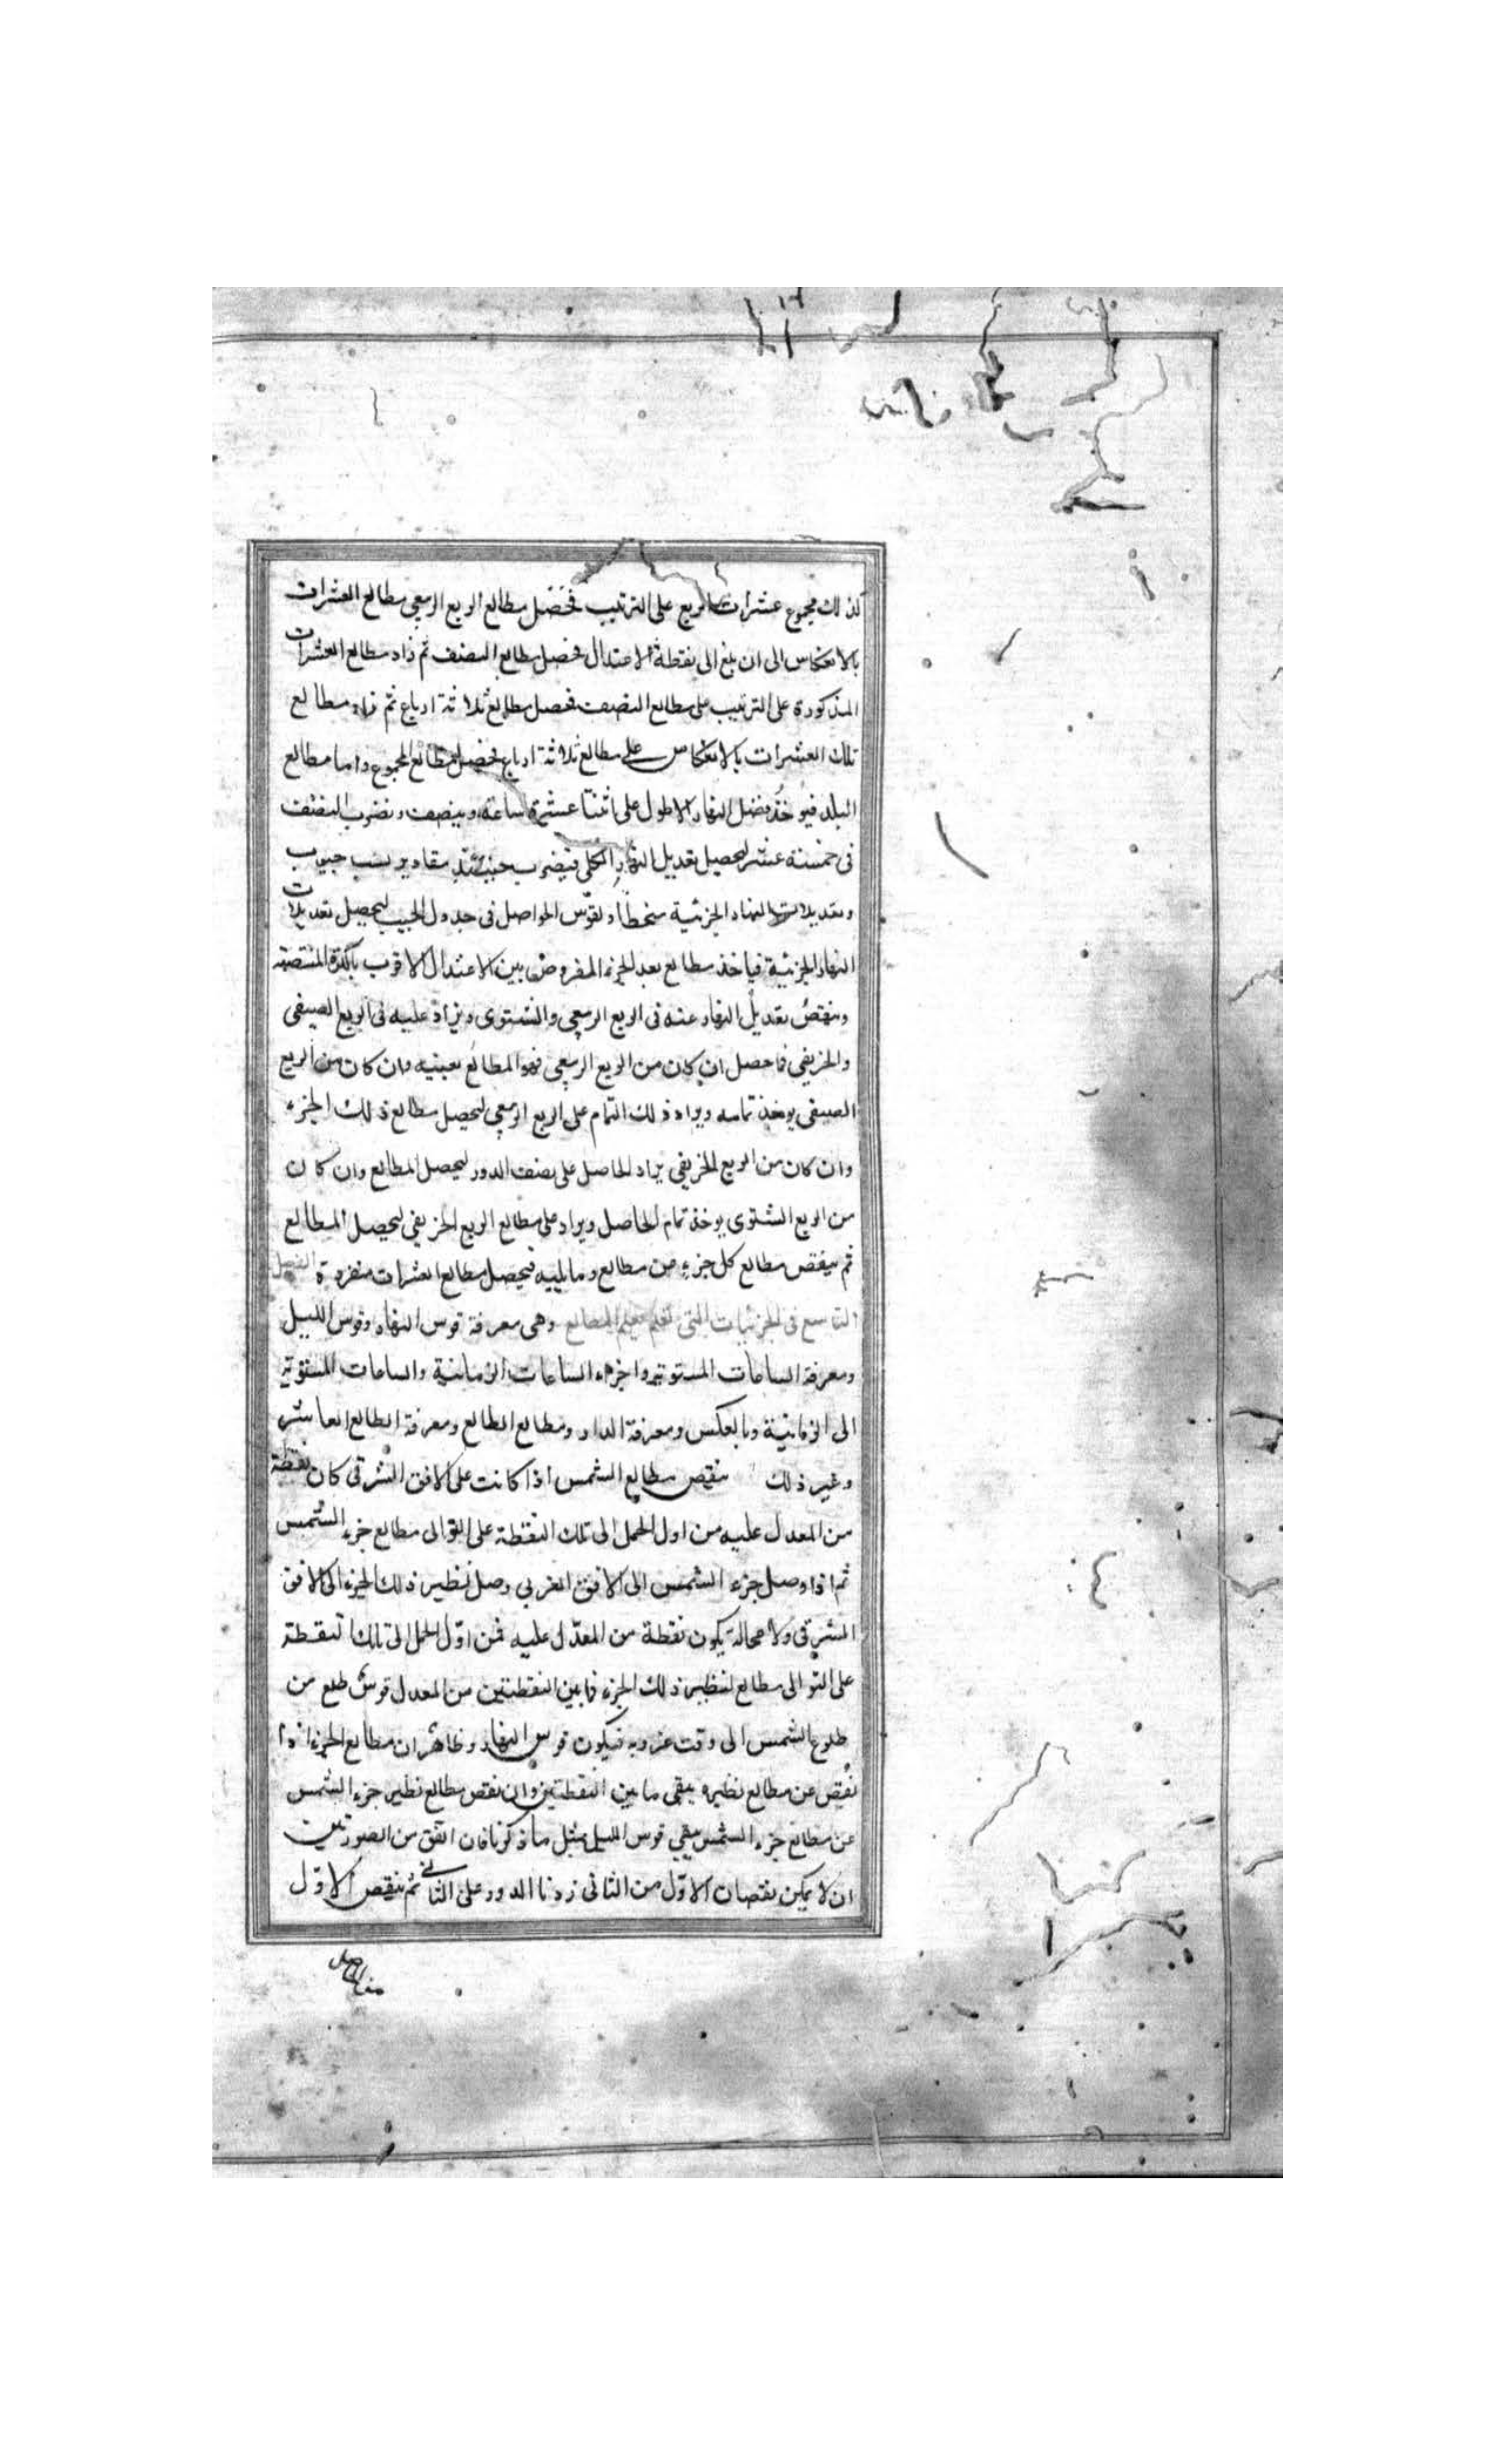 كذلك مجموع عشرات الربع على الترتيب فحصل مطالع الربع الربيعي مطالع العشرات
بالانعكاس الى ان بلغ الى نقطة الاعتدال فحصل مطالع النصف ثم زاد مطالع العشرات
المذكورة على الترتيب على مطالع النصف فحصل مطالع ثلاثة ارباع ثم زاد مطالع
تلك العشرات بالانعكاس على مطالع ثلاثة ارباع فحصل مطالع المجموع واما مطالع
البلد فيوخذ فضل النهار الاطول على اثنتا عشرة ساعة وينصف ونضرب النصف
فى خمسة عشر ليحصل تعديل النهار الكلى فيضرب حينئذ مقادير نسب جيوب
وتعديلات النهار الجزئية منحطا ونقوّس الحواصل فى جدول الجيب ليحصل تعديلات
النهار الجزئية فياخذ مطالع بعد الجزء المفروض بين الاعتدال الاقرب بالكرة المنتصبة
وينقص تعديل النهار عنه فى الربع الربيعي والشتوى ويزاد عليه فى الربع الصيفى
والخريفي فما حصل ان كان من الربع الربيعي فهو المطالع بعينه وان كان من الربع
الصيفى يوخذ تمامه ويزاد ذلك التمام على الربع الربيعي ليحصل مطالع ذلك الجزء
وان كان من الربع الخريفي يزاد الحاصل على نصف الدور ليحصل المطالع وان كان
من الربع الشتوى يوخذ تمام الحاصل ويزاد على مطالع الربع الخريفي ليحصل المطالع
ثم ينقص مطالع كل جزء من مطالع وما يليه فيحصل مطالع العشرات منفردة الفصل
التاسع فى الجزئيات التى تعلم المطالع وهى معرفة قوس النهار وقوس الليل
ومعرفة الساعات المستوية واجزاء الساعات الزمانية والساعات المستوية
الى الزمانية وبالعكس ومعرفة الداير ومطالع الطالع ومعرفة الطالع العاشر
وغير ذلك ننقص مطالع الشمس اذا كانت على الافق الشرقى كان نقطة
من المعدل عليه من اول الحمل الى تلك النقطة على التوالى مطالع جزء الشمس
ثم اذا وصل جزء الشمس الى الافق الغربي وصل نظير ذلك الجزء الى الافق
المشرقى ولا محالة يكون نقطة من المعدّل عليه فمن اوّل الحمل الى تلك النقطة
على التوالى مطالع لنظير ذلك الجزء فما بين النقطتين من المعدل قوس طلع من
طلوع الشمس الى وقت غروبه فيكون قوس النهار وظاهر ان مطالع الجزء اذا
نقص عن مطالع نظيره يبقى ما بين النقطتين وان نقص مطالع نظير جزء الشمس
عن مطالع جزء الشمس يبقى قوس الليل بمثل ما ذكرنا فان اتفق من الصورتين
ان لا يمكن نقصان الاوّل من الثانى زدنا الدور على الثانى ثم ننقص الاوّل